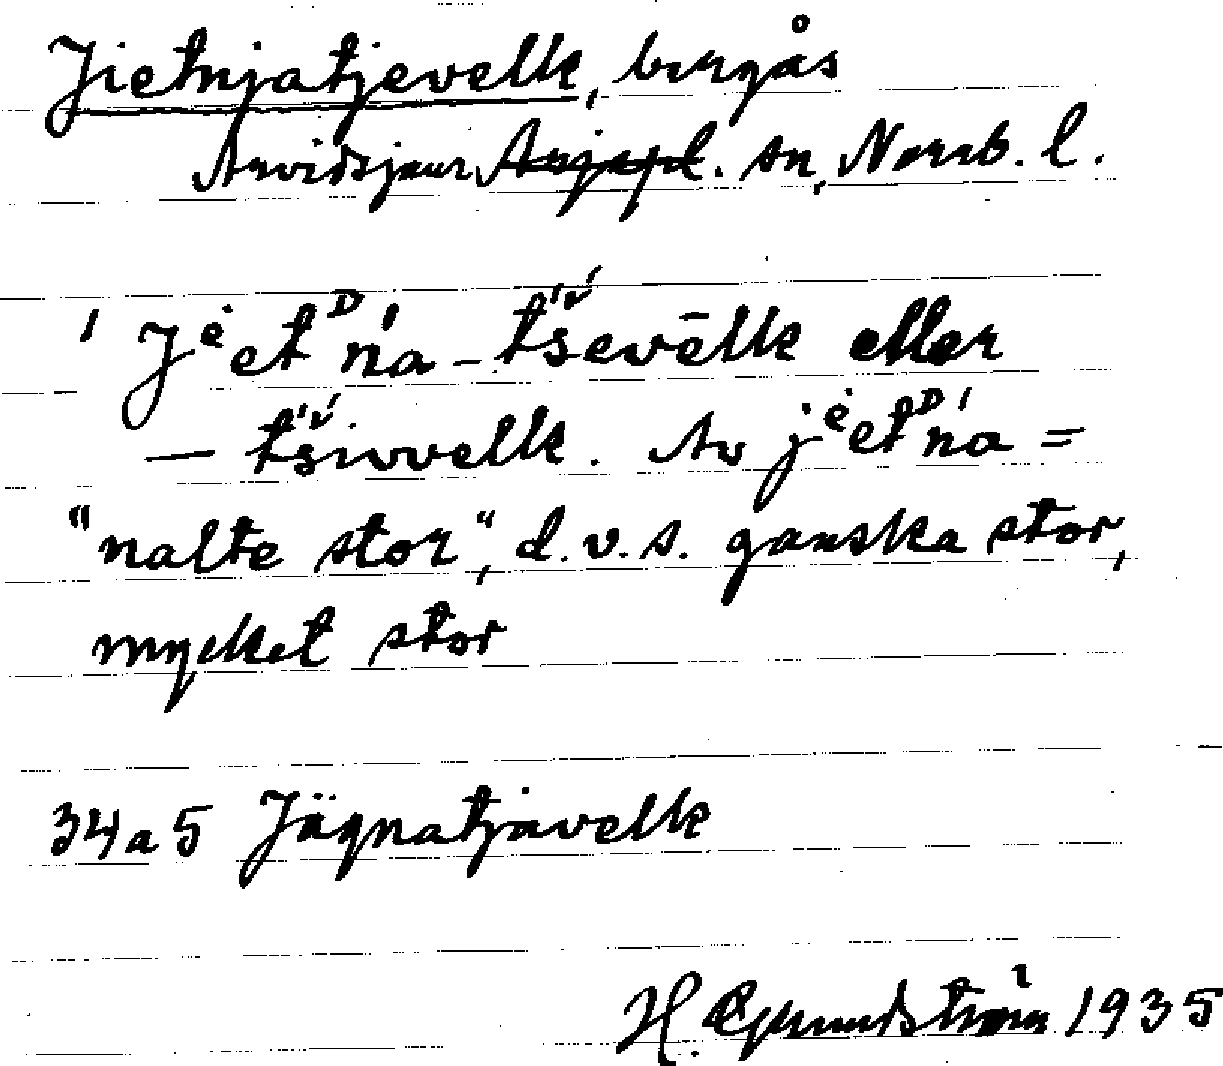 Jietnjatjevelk, bergås
Arvidsjaur Arjepl. sn, Norrb. l.
ˈjėetᴰńa-tš́evēlk eller
— tš́ivvelk. Av jėetᴰńa =
"nalte stor", d.v.s. ganska stor,
mycket stor
34a5 Jägnatjavelk
H. Grundström 1935